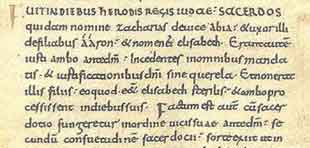 FUIT IN DIEBUS HERODIS REGIS IUDAE· SACERDOS
quidam nomine zacharias deuice abia· & uxor illi
defiliabus aaron· & nomen ei elisabeth· Erant autem
iusti ambo ante dm· Incedentes in omnibus manda
tis· & iustificationibus dni sine querela· Et non erat
illis filius· eo quod ess& elisabeth sterilis· & ambo pro
cessissent in diebus suis· Factum est autē cū sacer
dotio fungeretur in ordine uicis suae ante dm· se
cundū consuetudinē sacerdotii· sorte exiit ut in